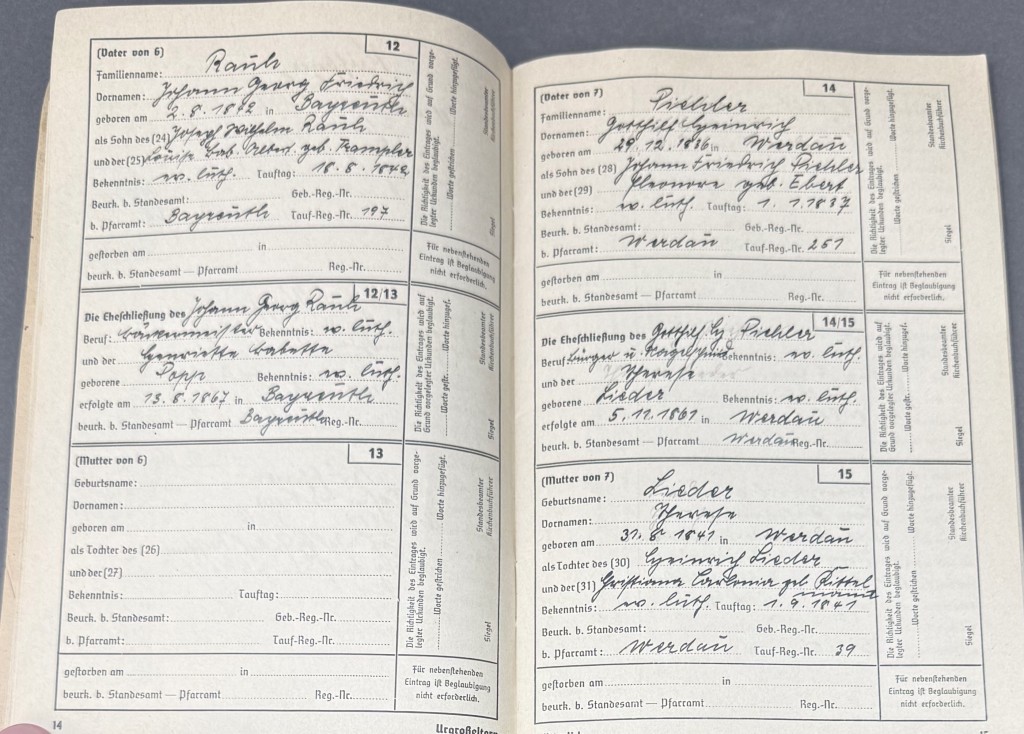 (Vater von 6) 12
Familienname: Rauh
Vornamen: Johann Georg Friedrich
geboren am 2.8.1842 in Bayreuth
als Sohn des (24) Joseph Wilhelm Rauh
und der (25) Louise Bab. geb. Trampler
Bekenntnis: ev. luth. Tauftag: 18.8.1842
Beurk. b. Standesamt: Geb.-Reg.-Nr.
b. Pfarramt: Bayreuth Tauf-Reg.-Nr. 197
gestorben am in
beurk. b. Standesamt — Pfarramt Reg.-Nr.
Die Richtigkeit des Eintrages wird auf Grund vorge-
legter Urkunden beglaubigt.
Worte gestrichen Worte hinzugefügt.
Siegel Standesbeamter
Kirchenbuchführer
Für nebenstehenden
Eintrag ist Beglaubigung
nicht erforderlich.
Die Eheschließung des Johann Georg Rauh 12/13
Beruf: Bäckermeister Bekenntnis: ev. luth.
und der Henriette Babette
geborene Popp Bekenntnis: ev. luth.
erfolgte am 13.8.1867 in Bayreuth
beurk. b. Standesamt — Pfarramt Bayreuth Reg.-Nr.
Die Richtigkeit des Eintrages wird auf
Grund vorgelegter Urkunden beglaubigt.
Worte gestr. Worte hinzugefügt.
Siegel Standesbeamter
Kirchenbuchführer
(Mutter von 6) 13
Geburtsname:
Vornamen:
geboren am in
als Tochter des (26)
und der (27)
Bekenntnis: Tauftag:
Beurk. b. Standesamt: Geb.-Reg.-Nr.
b. Pfarramt: Tauf-Reg.-Nr.
gestorben am in
beurk. b. Standesamt — Pfarramt Reg.-Nr.
Die Richtigkeit des Eintrages wird auf Grund vorge-
legter Urkunden beglaubigt.
Worte gestrichen Worte hinzugefügt.
Siegel Standesbeamter
Kirchenbuchführer
Für nebenstehenden
Eintrag ist Beglaubigung
nicht erforderlich.
14 Urgroßeltern
(Vater von 7) 14
Familienname: Piehler
Vornamen: Gotthilf Heinrich
geboren am 29.12.1836 in Werdau
als Sohn des (28) Johann Friedrich Piehler
und der (29) Eleonore geb. Ebert
Bekenntnis: ev. luth. Tauftag: 1.1.1837
Beurk. b. Standesamt: Geb.-Reg.-Nr.
b. Pfarramt: Werdau Tauf-Reg.-Nr. 251
gestorben am in
beurk. b. Standesamt — Pfarramt Reg.-Nr.
Die Richtigkeit des Eintrages wird auf Grund vorge-
legter Urkunden beglaubigt.
Worte gestrichen Worte hinzugefügt.
Siegel Standesbeamter
Kirchenbuchführer
Für nebenstehenden
Eintrag ist Beglaubigung
nicht erforderlich.
Die Eheschließung des Gotthilf Hg Piehler 14/15
Beruf: Bürger u. Nagelschmied Bekenntnis: ev. luth.
und der Therese
geborene Lieder Bekenntnis: ev. luth.
erfolgte am 5.11.1861 in Werdau
beurk. b. Standesamt — Pfarramt Werdau Reg.-Nr.
Die Richtigkeit des Eintrages wird auf
Grund vorgelegter Urkunden beglaubigt.
Worte gestr. Worte hinzugefügt.
Siegel Standesbeamter
Kirchenbuchführer
(Mutter von 7) 15
Geburtsname: Lieder
Vornamen: Therese
geboren am 31.8 1841 in Werdau
als Tochter des (30) Heinrich Lieder
und der (31) Christiana geb Rittel
mann
Bekenntnis: ev. luth. Tauftag: 1.9.1841
Beurk. b. Standesamt: Geb.-Reg.-Nr.
b. Pfarramt: Werdau Tauf-Reg.-Nr. 39
gestorben am in
beurk. b. Standesamt — Pfarramt Reg.-Nr.
Die Richtigkeit des Eintrages wird auf Grund vorge-
legter Urkunden beglaubigt.
Worte gestrichen Worte hinzugefügt.
Siegel Standesbeamter
Kirchenbuchführer
Für nebenstehenden
Eintrag ist Beglaubigung
nicht erforderlich.